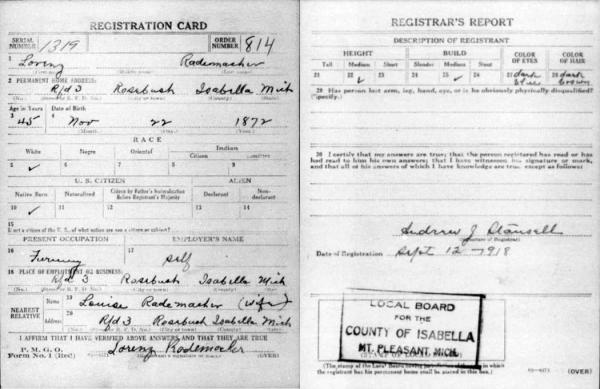 REGISTRATION CARD
SERIAL NUMBER 1319 ORDER NUMBER 814
1 Lorenz Rademacher
(First name) (Middle name) (Last name)
2 PERMANENT HOME ADDRESS:
Rfd 3 Rosebush Isabella Mich
(No.) (Street or R. F. D. No.) (City or town) (County) (State)
Age in Years Date of Birth
3 45 4 Nov 22 1872
(Month) (Day) (Year)
RACE
White Negro Oriental Indian
Citizen Noncitizen
5 ✓ 6 7 8 9
U. S. CITIZEN ALIEN
Native Born Naturalized Citizen by Father's Naturalization Before Registrant's Majority Declarant Non-declarant
10 ✓ 11 12 13 14
15
If not a citizen of the U. S., of what nation are you a citizen or subject?
PRESENT OCCUPATION EMPLOYER'S NAME
16 Farming 17 self
18 PLACE OF EMPLOYMENT OR BUSINESS:
Rfd 3 Rosebush Isabella Mich
(No.) (Street or R. F. D. No.) (City or town) (County) (State)
NEAREST RELATIVE Name 19 Louise Rademacher (wife)
Address 20 Rfd 3 Rosebush Isabella Mich
(No.) (Street or R. F. D. No.) (City or town) (County) (State)
I AFFIRM THAT I HAVE VERIFIED ABOVE ANSWERS AND THAT THEY ARE TRUE
P. M. G. O.
Form No. 1 (Red) Lorenz Rademacher
(Registrant's signature or mark) (OVER)
REGISTRAR'S REPORT
DESCRIPTION OF REGISTRANT
HEIGHT BUILD COLOR OF EYES COLOR OF HAIR
Tall Medium Short Slender Medium Stout
21 22 ✓ 23 24 25 ✓ 26 27 dark blue 28 dark brown
29 Has person lost arm, leg, hand, eye, or is he obviously physically disqualified?
(Specify.)
30 I certify that my answers are true; that the person registered has read or has
had read to him his own answers; that I have witnessed his signature or mark,
and that all of his answers of which I have knowledge are true, except as follows:
Andrew J Stansell
(Signature of Registrar)
Date of Registration Sept 12 - 1918
LOCAL BOARD
FOR THE
COUNTY OF ISABELLA
MT. PLEASANT, MICH.
(The stamp of the Local Board having jurisdiction of the area in which
the registrant has his permanent home shall be placed in this box.)
(OVER)